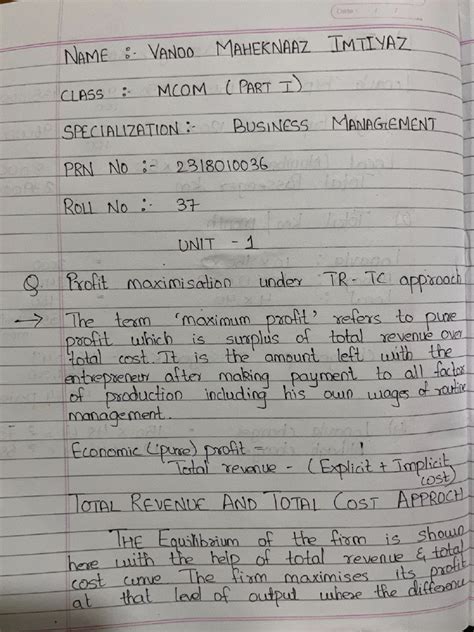 NAME :- VANOO MAHEKNAAZ IMTIYAZ
CLASS :- MCOM (PART I)
SPECIALIZATION:- BUSINESS MANAGEMENT
PRN NO :- 2318010036
ROLL NO :- 37
UNIT - 1
Q Profit maximisation under TR-TC approach
→ The term 'maximum profit' refers to pure
profit which is surplus of total revenue over
total cost. It is the amount left with the
entrepreneur after making payment to all factor
of production including his own wages of routine
management.
Economic (pure) profit =
Total revenue - (Explicit + Implicit
cost)
TOTAL REVENUE AND TOTAL COST APPROCH
THE Equilibrium of the firm is shown
here with the help of total revenue & total
cost curve The firm maximises its profit
at that level of output where the difference